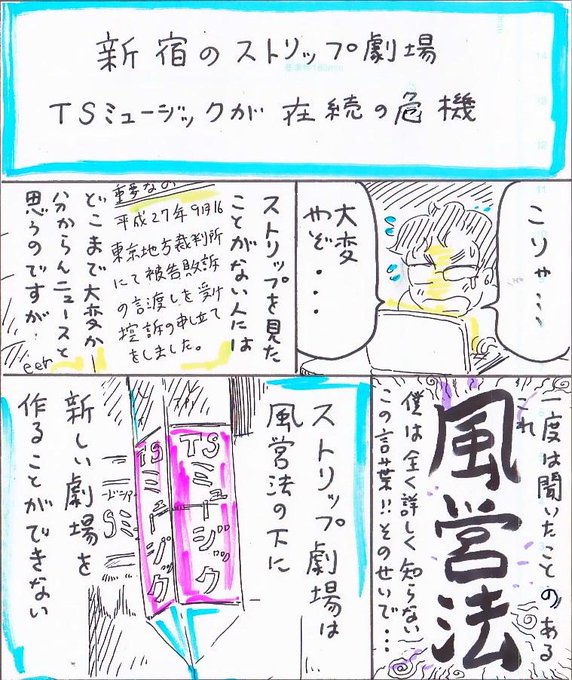 新宿のストリップ劇場
TSミュージックが在続の危機
こりゃ…
大変
やぞ・・・
ストリップを見た
ことがない人には
重要なの
平成27年9月16
東京地方裁判所
にて被告敗訴
の言渡しを受け
控訴の申し立て
をしました。
どこまで大変か
分からんニュースと
思うのですが・
一度は聞いたことのある
これ
風営法
僕は全く詳しく知らない
この言葉!!そのせいで…
ストリップ劇場は
風営法の下に
TSミュージック
TSミュージック
新しい劇場を
作ることができない